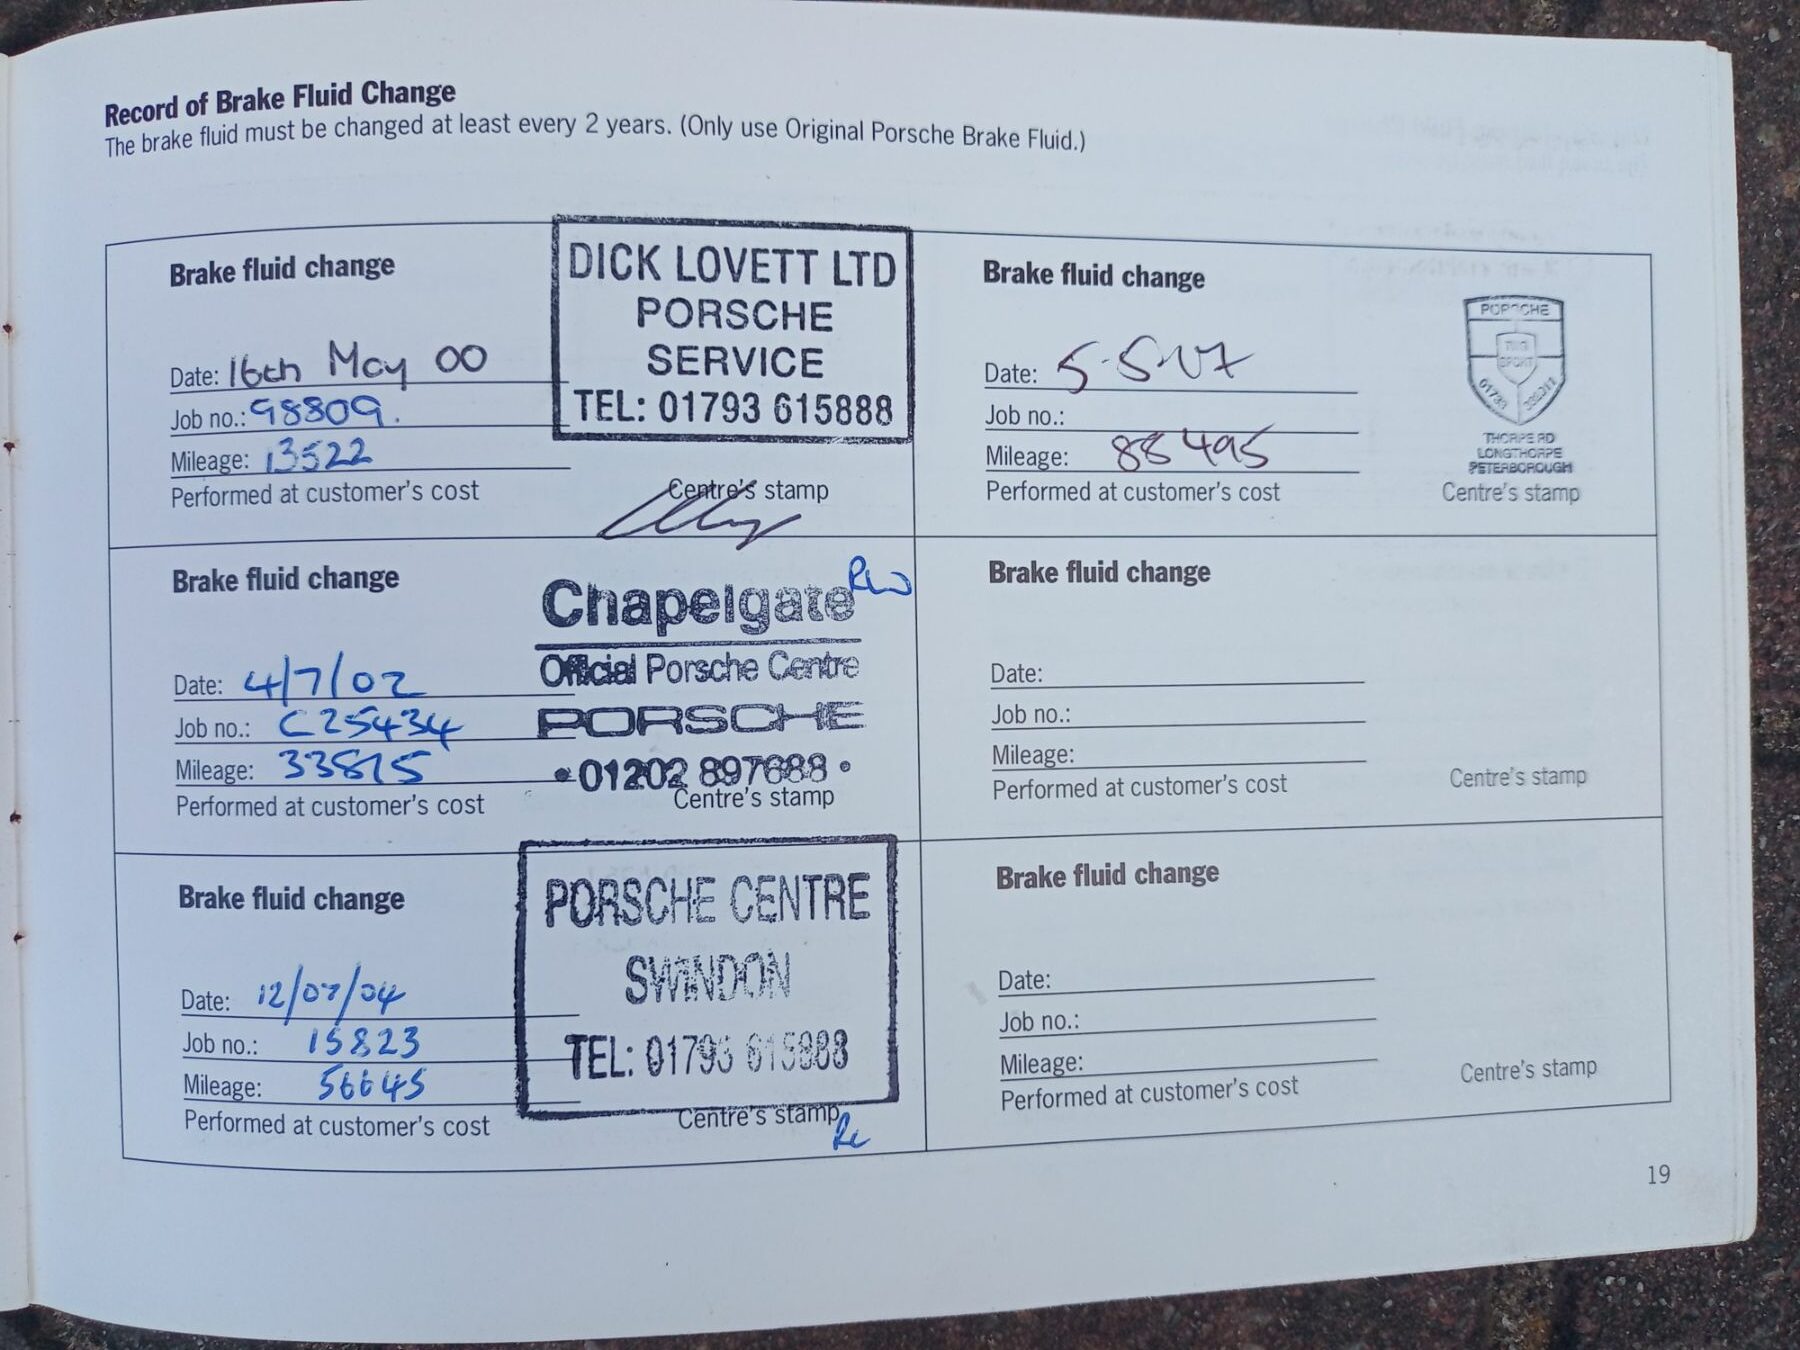 Record of Brake Fluid Change
The brake fluid must be changed at least every 2 years. (Only use Original Porsche Brake Fluid.)
Brake fluid change
Date: 16th May 00
Job no.: 98809.
Mileage: 13522
Performed at customer's cost
DICK LOVETT LTD
PORSCHE
SERVICE
TEL: 01793 615888
Centre's stamp
Brake fluid change
Date: 4/7/02
Job no.: C25434
Mileage: 33815
Performed at customer's cost
Chapelgate
Official Porsche Centre
PORSCHE
• 01202 897688 •
Centre's stamp
Brake fluid change
Date: 12/07/04
Job no.: 15823
Mileage: 56645
Performed at customer's cost
PORSCHE CENTRE
SWINDON
TEL: 01793 615888
Centre's stamp
Brake fluid change
Date: 5-5-07
Job no.:
Mileage: 88495
Performed at customer's cost
PORSCHE
THORPE RD
LONGTHORPE
PETERBOROUGH
Centre's stamp
Brake fluid change
Date:
Job no.:
Mileage:
Performed at customer's cost
Centre's stamp
Brake fluid change
Date:
Job no.:
Mileage:
Performed at customer's cost
Centre's stamp
19